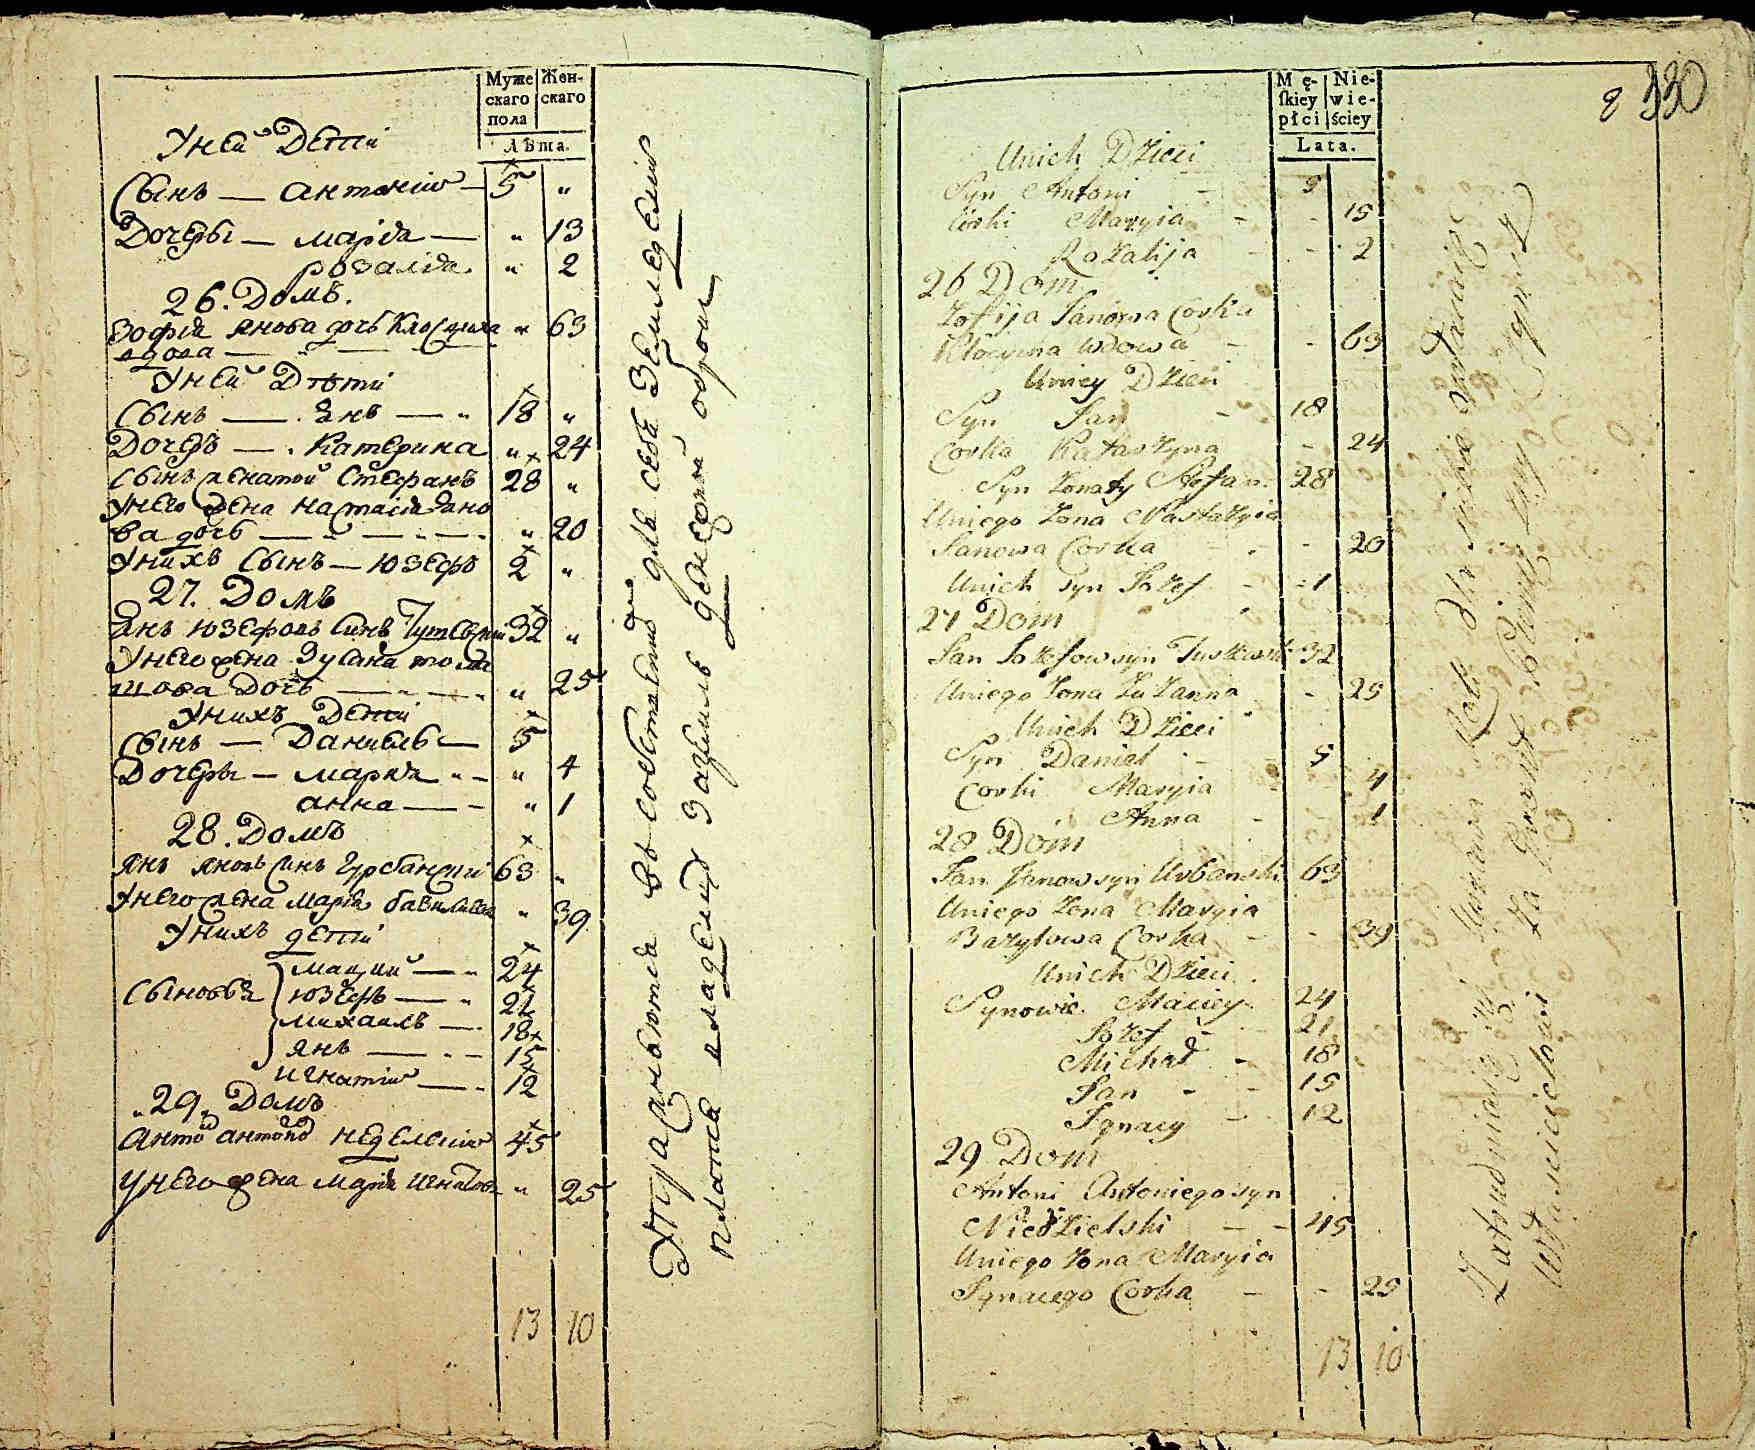 Муже
скаго
пола
Жен-
скаго
Лѣта.
Уней Дети
Сынъ — Антоний — 5 "
Дочеры — Марія — " 13
розалія " 2
26. Домъ.
Зофія Янова дочь Клосцина " 63
вдова —
Уней Дѣти
Сынъ — Янъ — " 18 "
Дочеръ — Катерина " 24
Сынъ женатой Стефанъ 28 "
Унего жена Настасія Яно
ва дочь — " 20
Унихъ Сынъ — Юзефъ 2 "
27. Домъ
Янъ Юзефовъ Синъ 32 "
Унего жена Зусана
шова Дочь — " 25
Унихъ Дети
Сынъ — Данибль — 5
Дочеры — Мария " — " 4
Анна — " 1
28. Домъ
Янъ Яновъ Синъ Урбанский 63 "
Унего жена Марія " 39
Унихъ дети
Сыновья Маций — " 24
Юзефъ — " 21
Михаилъ — 18
Янъ — 15
Игнатий — 12
" 29 " Домъ
Анто Антоно Неделский 45
Унего жена Марія Игнатова " 25
13 10
въ собственной для себя Земледелий
платя владелцу денежной оброкъ
Mę-
ſkiey
płci
Nie-
wie-
ściey
Lata.
8 330
Unich Dzieci
Syn Antoni - 5
Corki Maryia - - 15
Rozalija - - 2
26 Dom
Zofija Janowa Corka
Kłocyina Wdowa - - 63
Uniey Dzieci
Syn Jan - 18
Corka Katarzyna - 24
Syn Zonaty Stefan 28
Uniego Zona Nastazyia
Janowa Corka - - 20
Unich syn Jozef - - 1
27 Dom
Jan Jozefow syn 32
Uniego Zona Zuzanna - 25
Unich Dzieci
Syn Daniel - 5
Corki Maryia 4
Anna - - 1
28 Dom
Jan Janow syn Urbanski 63
Uniego Zona Maryia
Bazylowa Corka - - 39
Unich Dzieci
Synowie Maciey 24
Jozef - 21
Michał - 18
Jan - - 15
Ignacy - 12
29 Dom
Antoni Antoniego syn
Niedzielski - - 45
Uniego Zona Maryia
Ignacego Corka - - 25
13 10